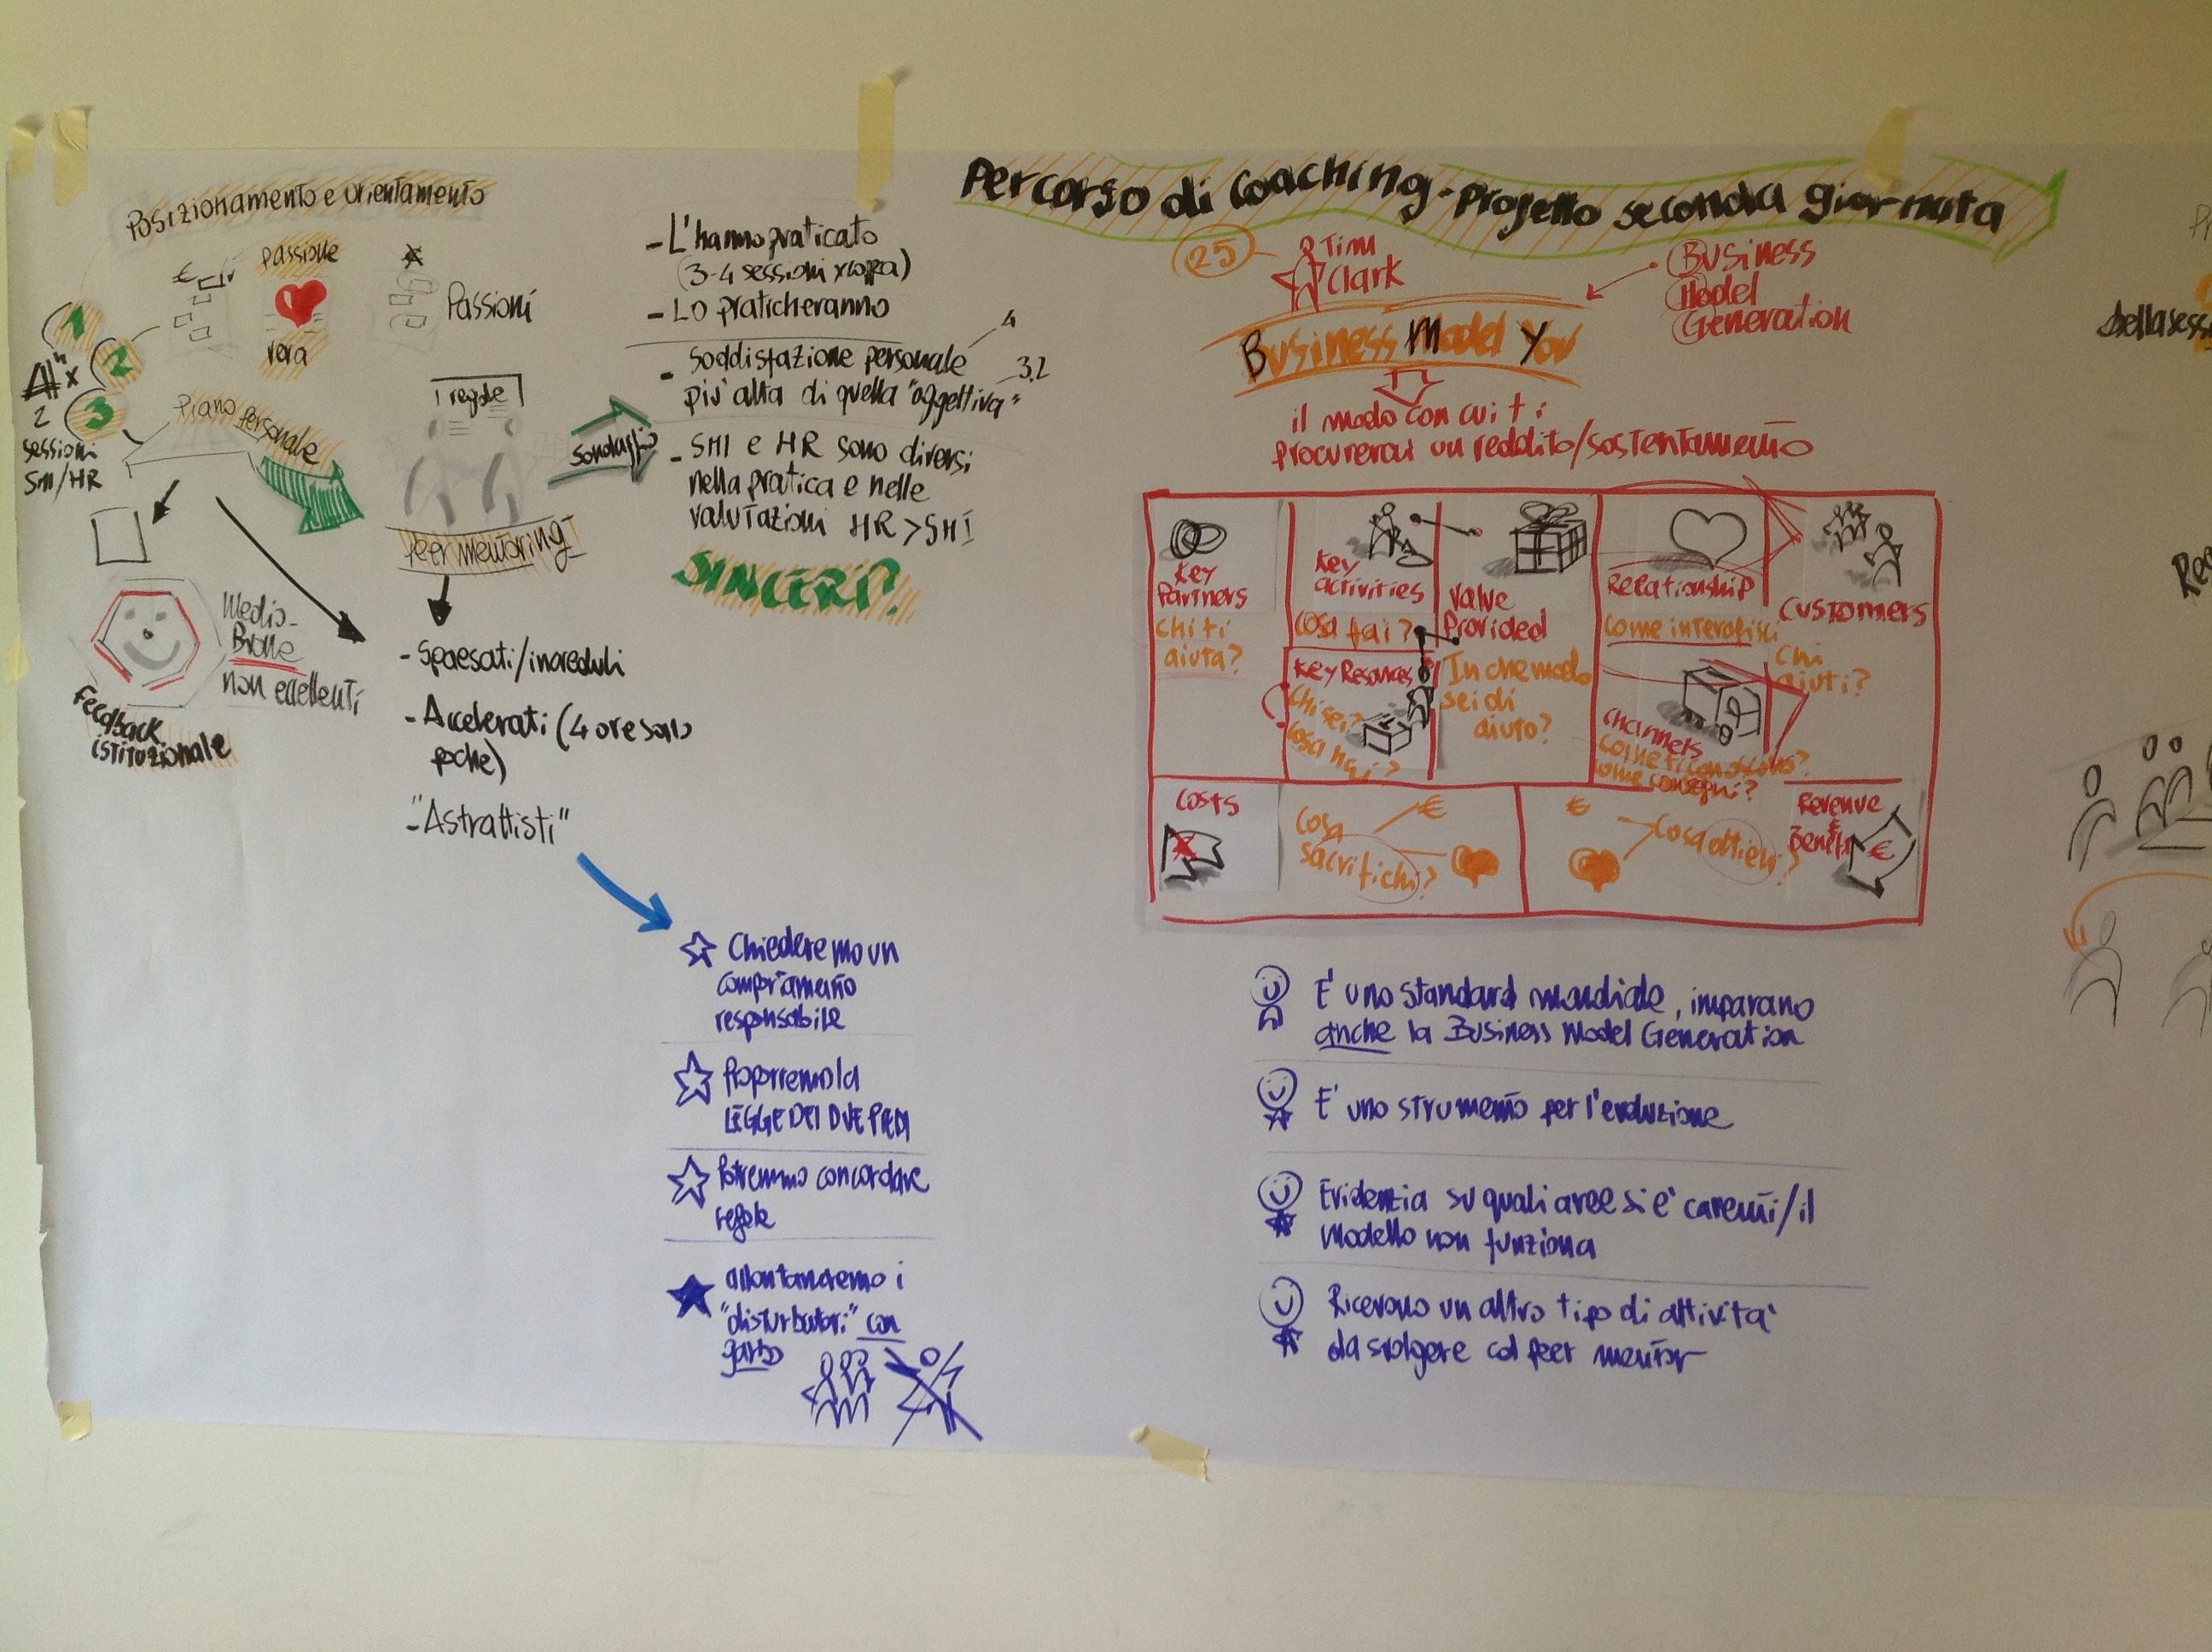 Percorso di Coaching - Progetto seconda giornata
Posizionamento e orientamento
€
passione
vera
Passioni
1
2
3
x
2
sessioni
SMI/HR
Piano personale
regole
Peer mentoring
Medio-
Buone
non eccellenti
Feedback
istituzionale
- Spaesati/increduli
- Accelerati (4 ore sono
poche)
- "Astrattisti"
sondaggio
- L'hanno praticato
(3-4 sessioni x coppia)
- Lo praticheranno
- Soddisfazione personale
più alta di quella "oggettiva"
4
3.2
- SMI e HR sono diversi
nella pratica e nelle
valutazioni HR > SMI
SINCERI?
Chiederemo un
comportamento
responsabile
Proporremo la
LEGGE DEI DUE PIEDI
Potremmo concordare
regole
allontaneremo i
"disturbatori" con
garbo
25
Tim
Clark
Business
Model
Generation
Business Model You
il modo con cui ti
procurerai un reddito/sostentamento
Key
Partners
chi ti
aiuta?
Key
activities
cosa fai?
Key Resources
Chi sei?
Cosa hai?
Value
Provided
In che modo
sei di
aiuto?
Relationship
come interagisci
Channels
come ti conoscono?
come consegni?
Customers
Chi
aiuti?
Costs
Cosa
sacrifichi?
€
€
Cosa ottieni?
Revenue
€
È uno standard mondiale, imparano
anche la Business Model Generation
E' uno strumento per l'evoluzione
Evidenzia su quali aree si è carenti/il
modello non funziona
Ricevono un altro tipo di attività
da svolgere col peer mentor